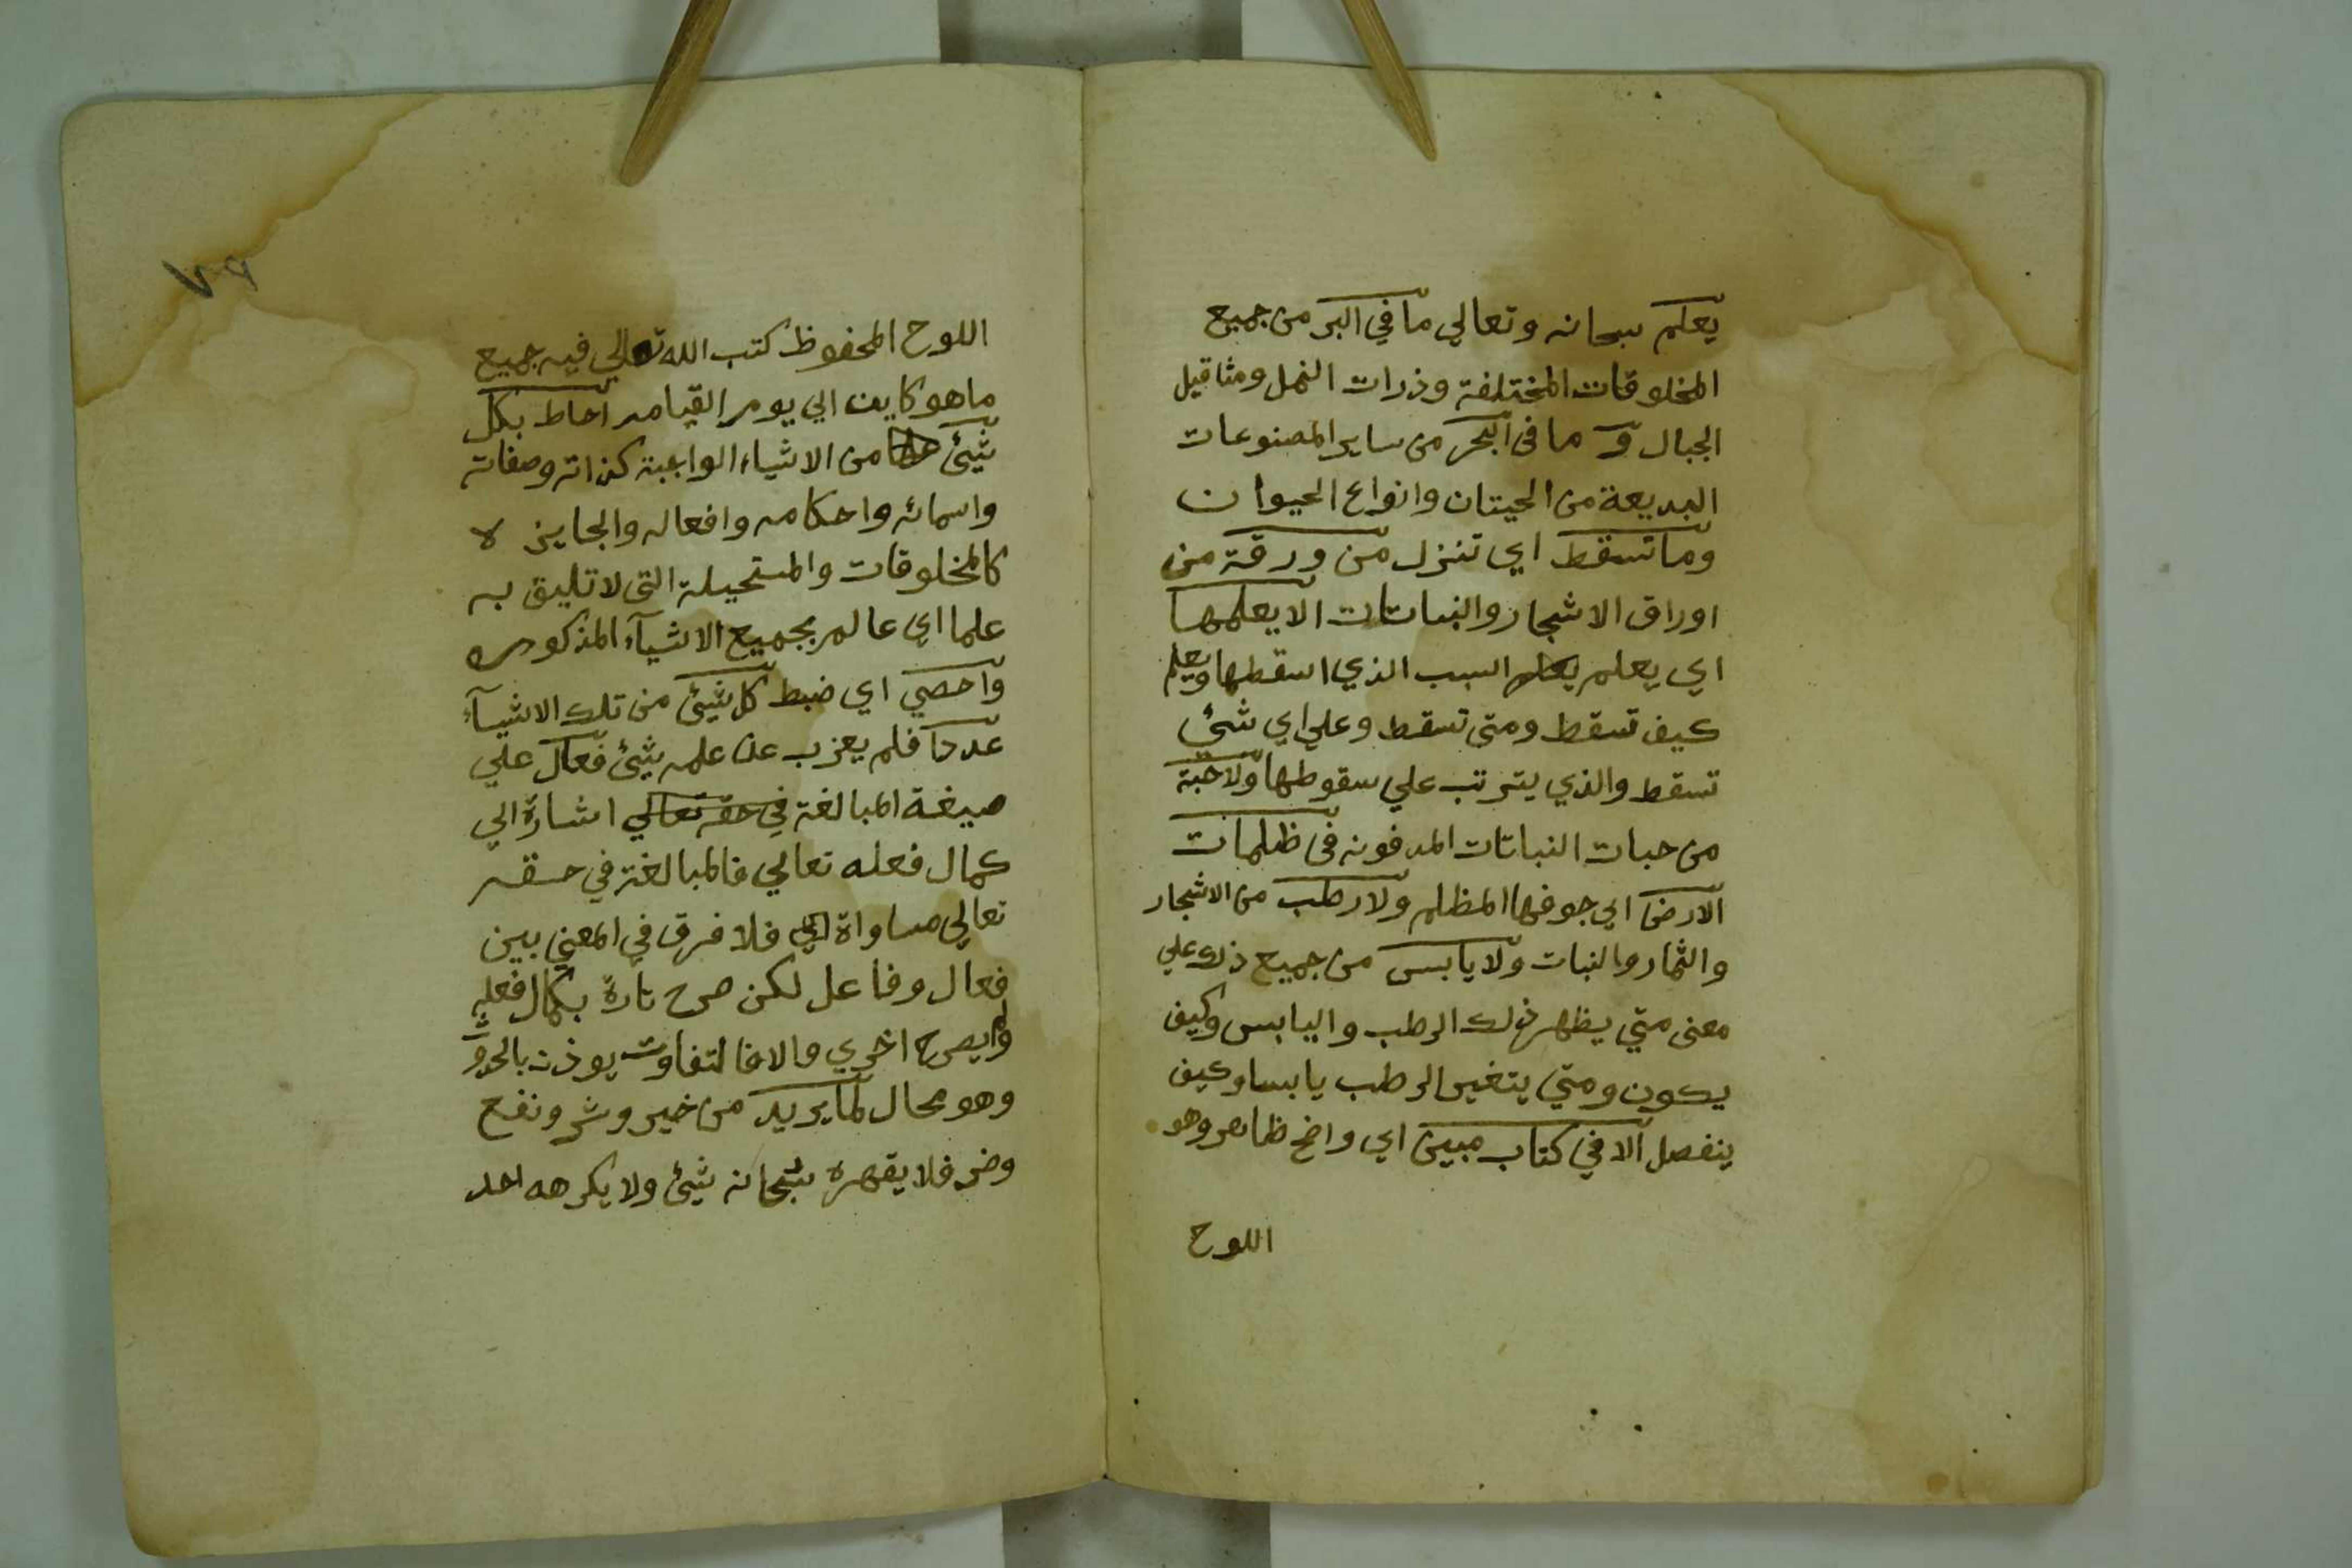 يعلم سبحانه وتعالي ما في البر من جميع
المخلوقات المختلفة وذرات النمل ومثاقيل
الجبال و ما فى البحر من ساير المصنوعات
البديعة من الحيتان وانواع الحيوان
وما تسقط اي تنزل من ورقة من
اوراق الاشجار والنباتات الا يعلمها
اي يعلم السبب الذي اسقطها ويعلم
كيف تسقط ومتى تسقط وعلي اي شئ
تسقط والذي يترتب علي سقوطها ولا حبة
من حبات النباتات المدفونه فى ظلمات
الارض اي جوفها المظلم ولا رطب من الاشجار
والثمار والنبات ولا يابس من جميع ذلك علي
معنى متي يظهر ذلك الرطب واليابس وكيف
يكون ومتي يتغير الرطب يابسا وكيف
ينفصل الا في كتاب مبين اي واضح ظاهر وهو
اللوح
٧٩
اللوح المحفوظ كتب الله تعالي فيه جميع
ما هو كاين الي يوم القيامه احاط بكل
شيئ من الاشياء الواجبة كذاته وصفاته
واسمائه واحكامه وافعاله والجايزه
كالمخلوقات والمستحيلة التى لا تليق به
علما اي عالم بجميع الاشيآء المذكوره
واحصي اي ضبط كل شيئ من تلك الاشيآء
عددا فلم يعزب عن علمه شيئ فعال علي
صيغة المبالغة في حقه تعالي اشارة الي
كمال فعله تعالي فالمبالغة في حقه
تعالي مساواة فلا فرق في المعني بين
فعال وفاعل لكن صرح تارة بكمال فعله
ولم يصرح اخري والا فالتفاوت يوذن بالحدو
وهو محال لما يريد من خير وشر ونفع
وضر فلا يقهره سبحانه شيئ ولا يكرهه احد